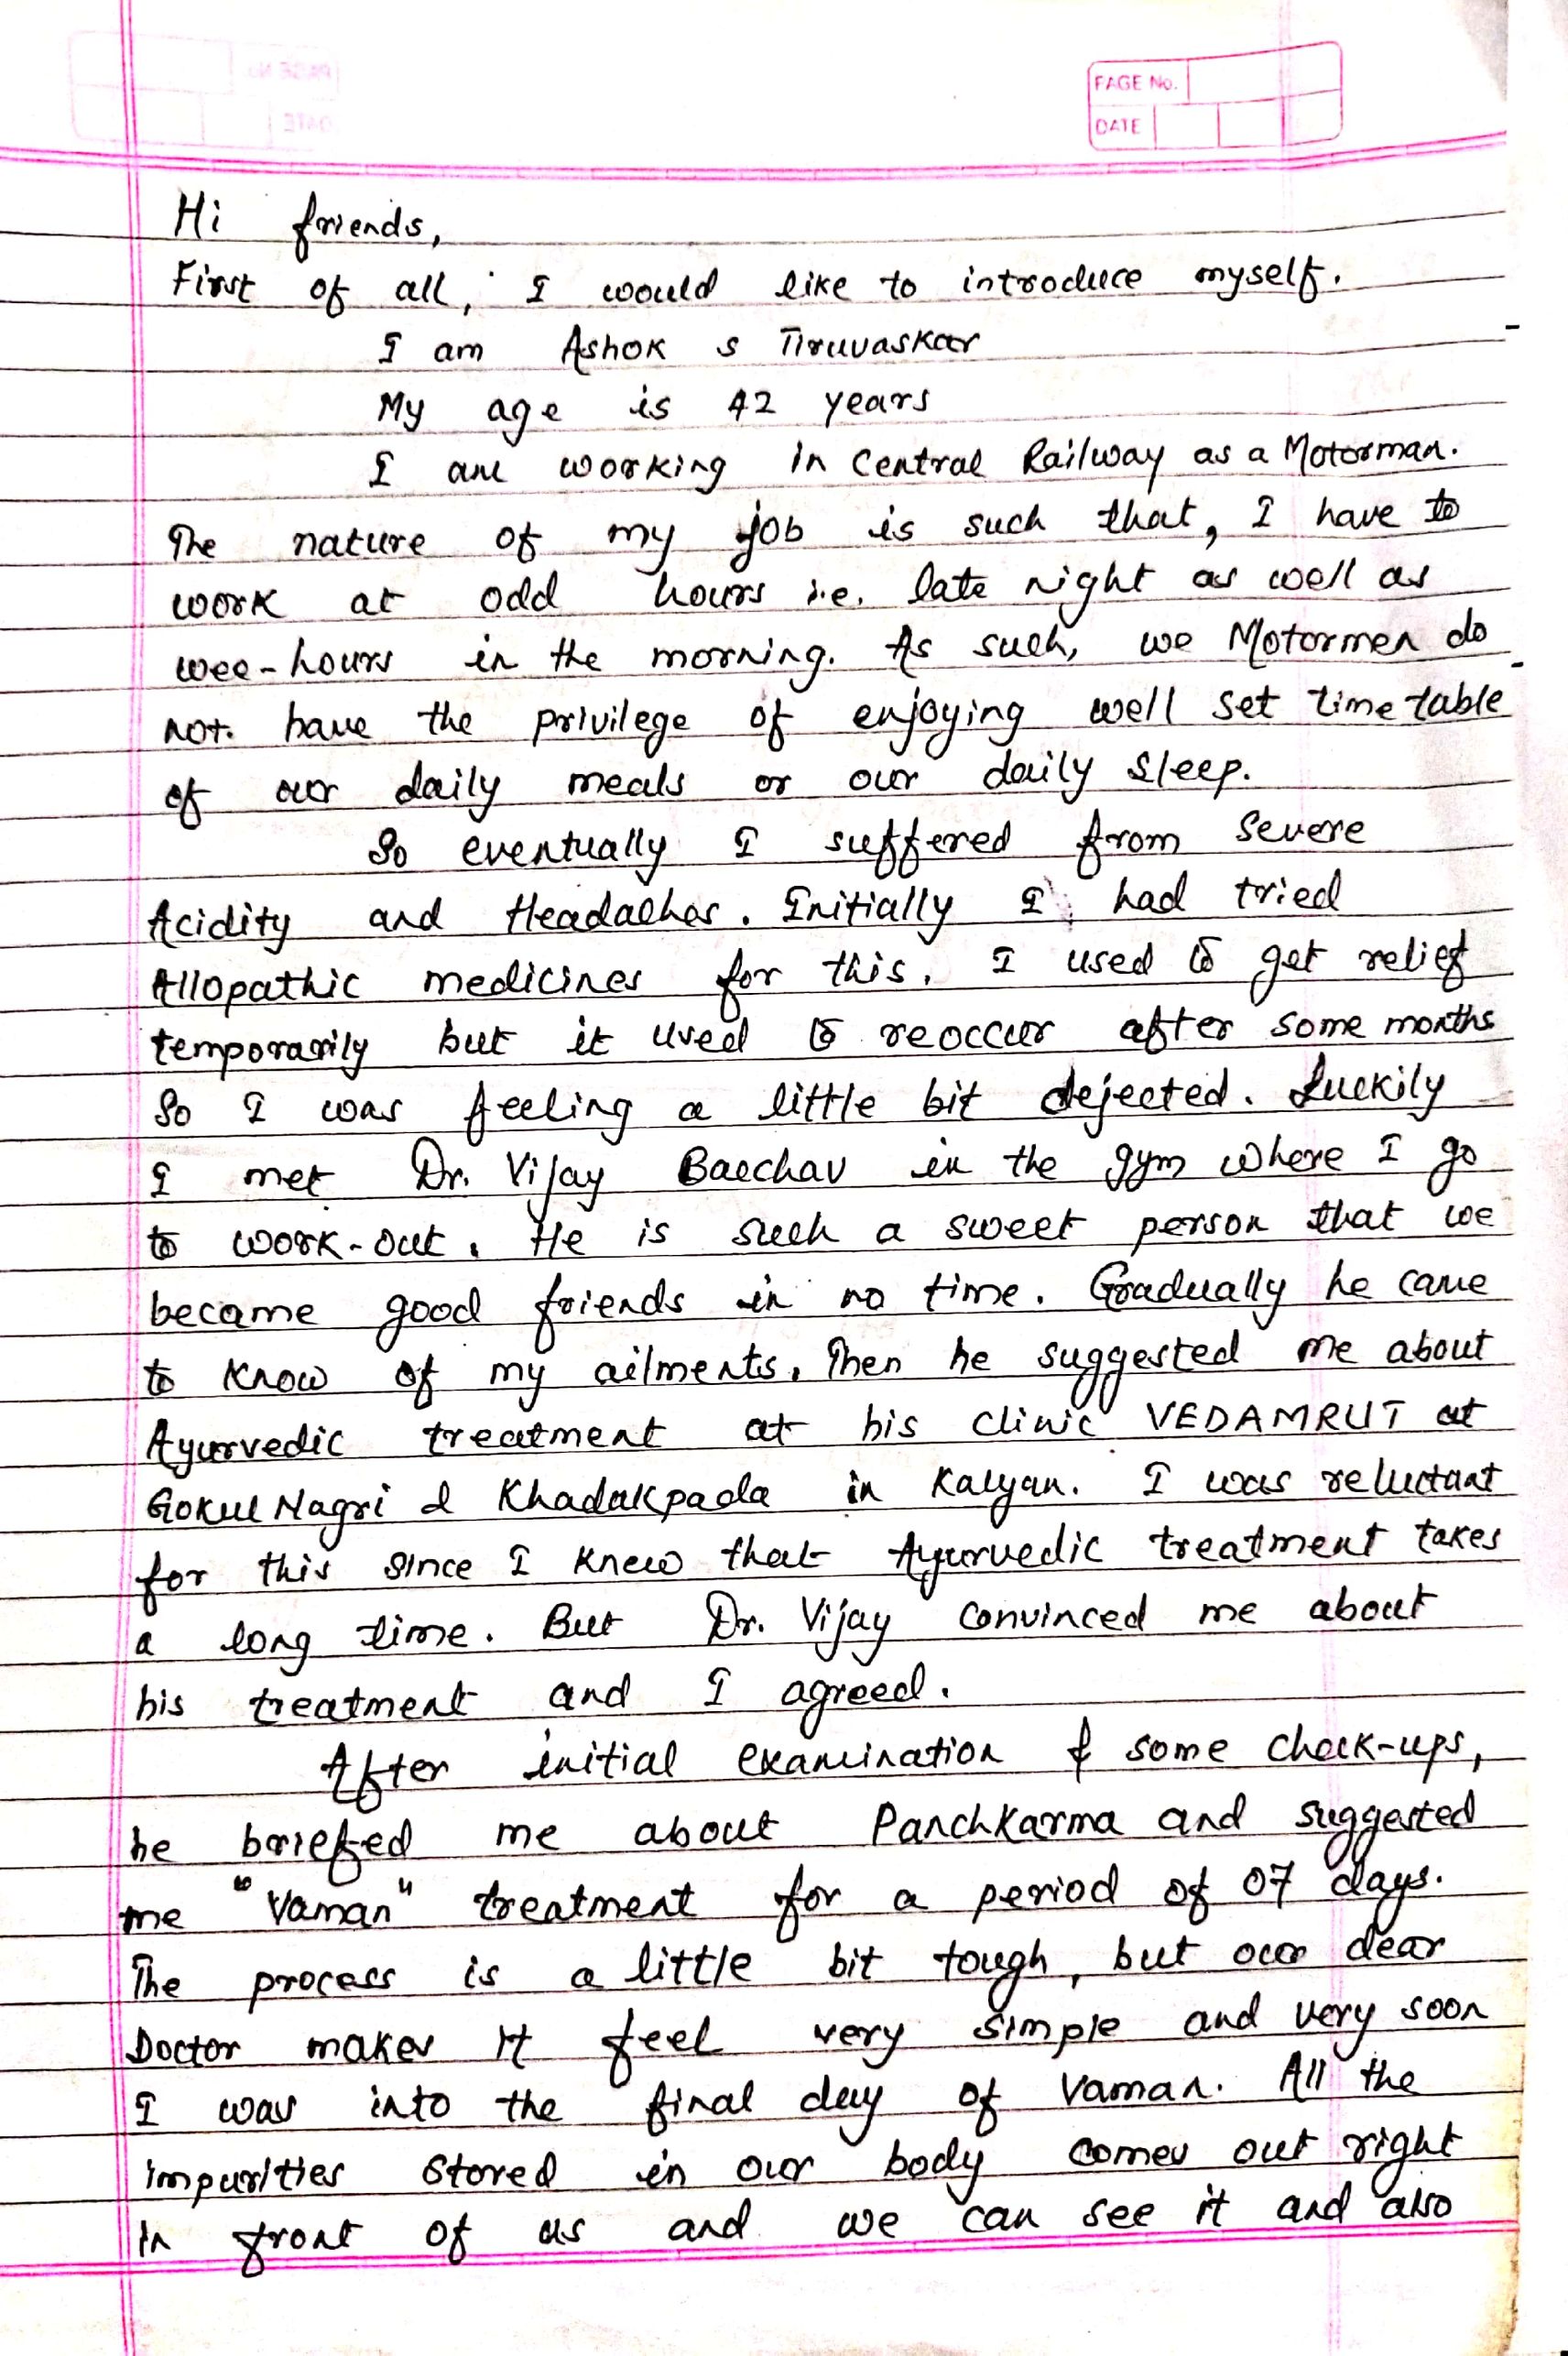 PAGE No.
DATE
Hi friends,
First of all, I would like to introduce myself.
I am Ashok S Tiruvaskar
My age is 42 years
I am working in Central Railway as a Motorman.
The nature of my job is such that, I have to
work at odd hours i.e. late night as well as
wee-hours in the morning. As such, we Motormen do
not. have the privilege of enjoying well set time table
of our daily meals or our daily sleep.
So eventually I suffered from severe
Acidity and Headaches. Initially I had tried
Allopathic medicines for this. I used to get relief
temporarily but it used to reoccur after some months
So I was feeling a little bit dejected. Luckily
I met Dr. Vijay Bacchav in the gym where I go
to work-out. He is such a sweet person that we
became good friends in no time. Gradually he came
to know of my ailments. Then he suggested me about
Ayurvedic treatment at his clinic VEDAMRUT at
Gokul Nagri & Khadakpada in Kalyan. I was reluctant
for this since I knew that Ayurvedic treatment takes
a long time. But Dr. Vijay convinced me about
his treatment and I agreed.
After initial examination & some check-ups,
he briefed me about Panchkarma and suggested
me "Vaman" treatment for a period of 07 days.
The process is a little bit tough, but our dear
Doctor makes it feel very simple and very soon
I was into the final day of Vaman. All the
impurities stored in our body comes out right
in front of us and we can see it and also